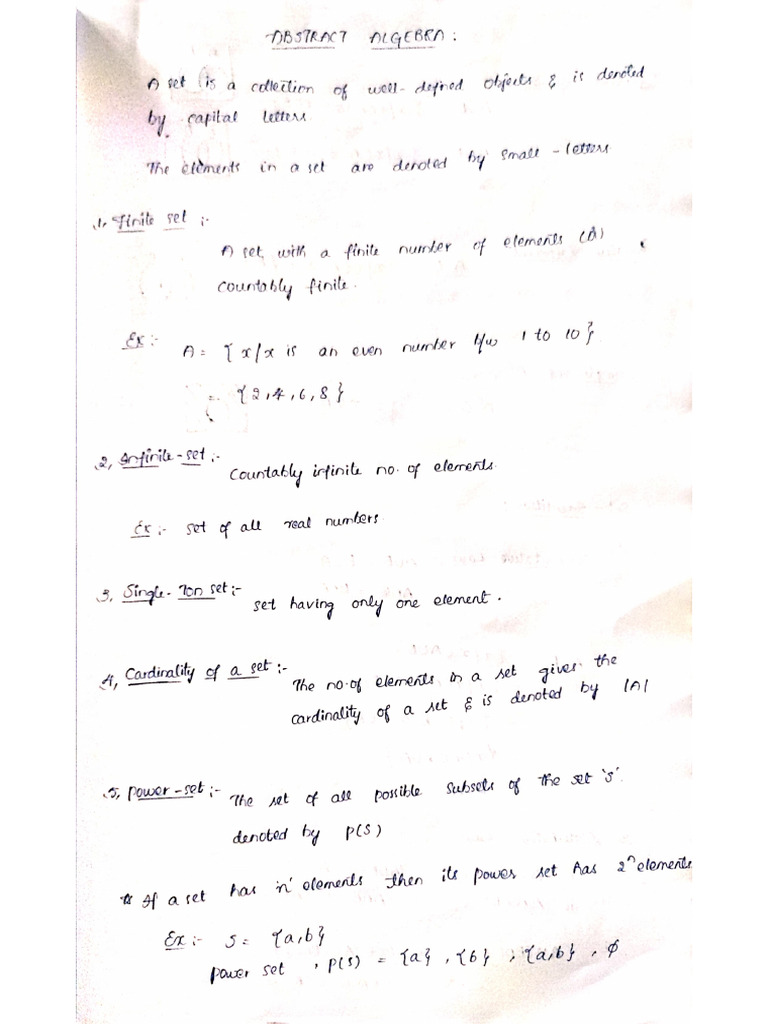 ABSTRACT ALGEBRA :
A set is a collection of well-defined objects & is denoted
by capital letters
The elements in a set are denoted by small-letters
1, Finite set :-
A set, with a finite number of elements (or)
countably finite.
Ex:- A = {x/x is an even number b/w 1 to 10}
= {2,4,6,8}
2, Infinite-set:- Countably infinite no. of elements
Ex:- set of all real numbers
3, Single-Ton set:- set having only one element.
4, Cardinality of a set:- The no. of elements in a set gives the
cardinality of a set & is denoted by |A|
5, power-set:- The set of all possible subsets of the set 's'.
denoted by P(S)
* If a set has 'n' elements then its power set has 2ⁿ elements
Ex:- S = {a,b}
power set, P(S) = {a}, {b}, {a,b}, ϕ